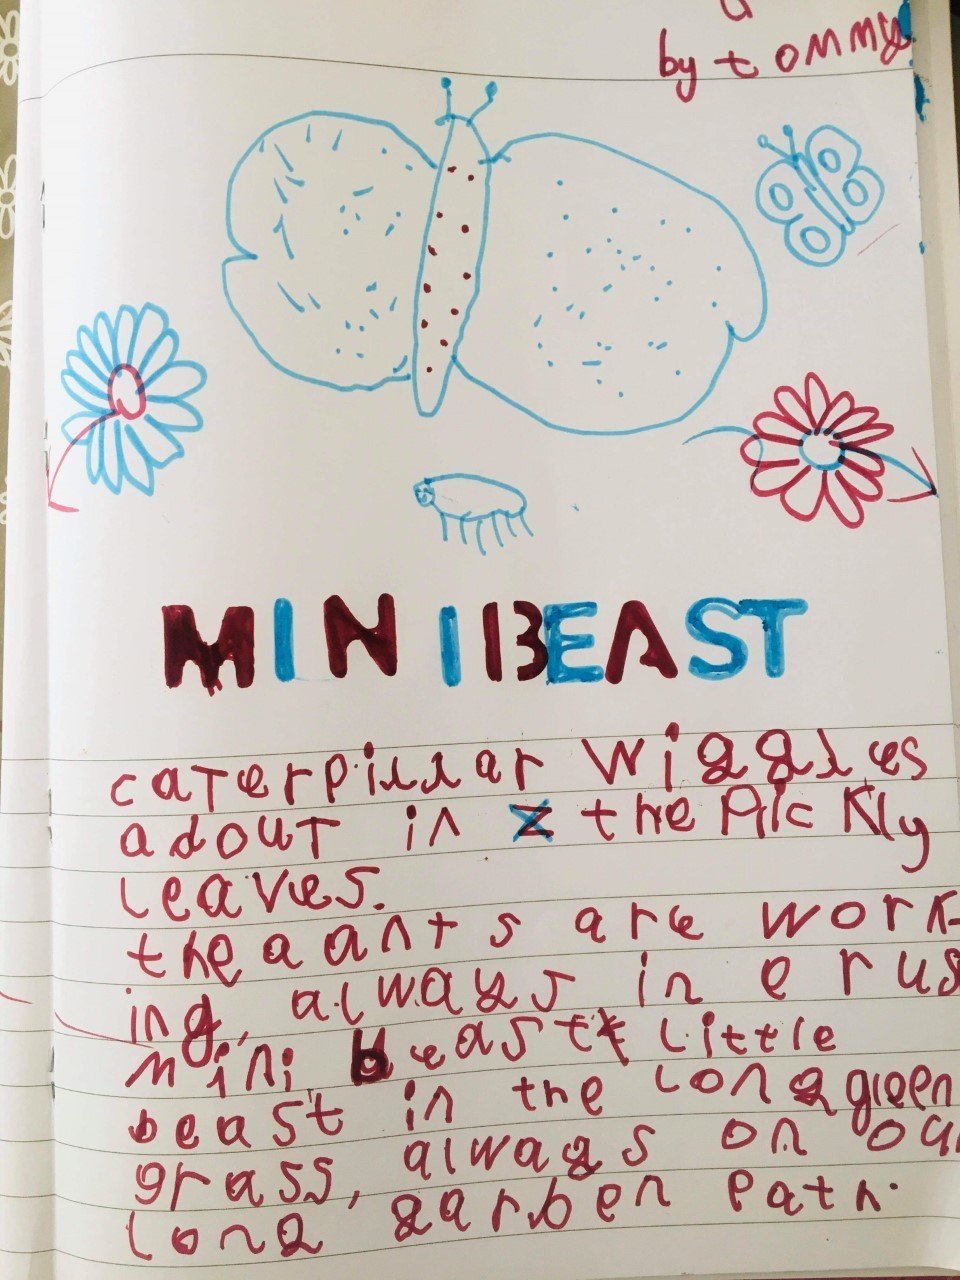 by tommy
MINIBEAST
caterpillar wiggles
adout in the Pickly
leaves.
the a ants are work-
ing, always in e rus
mini beast little
beast in the long green
grass, always on our
long garben path.